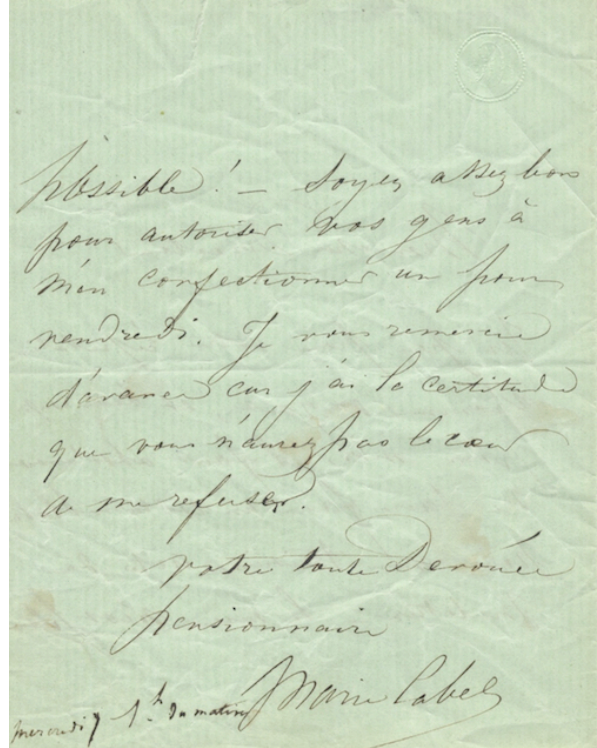 possible ! — Soyez assez bon
pour autoriser vos gens à
m'en confectionner un pour
vendredi. Je vous remercie
d'avance car j'ai la certitude
que vous n'aurez pas le cœur
de me refuser.
votre toute Dévouée
pensionnaire
Marie Cabel
mercredi 7 1h du matin